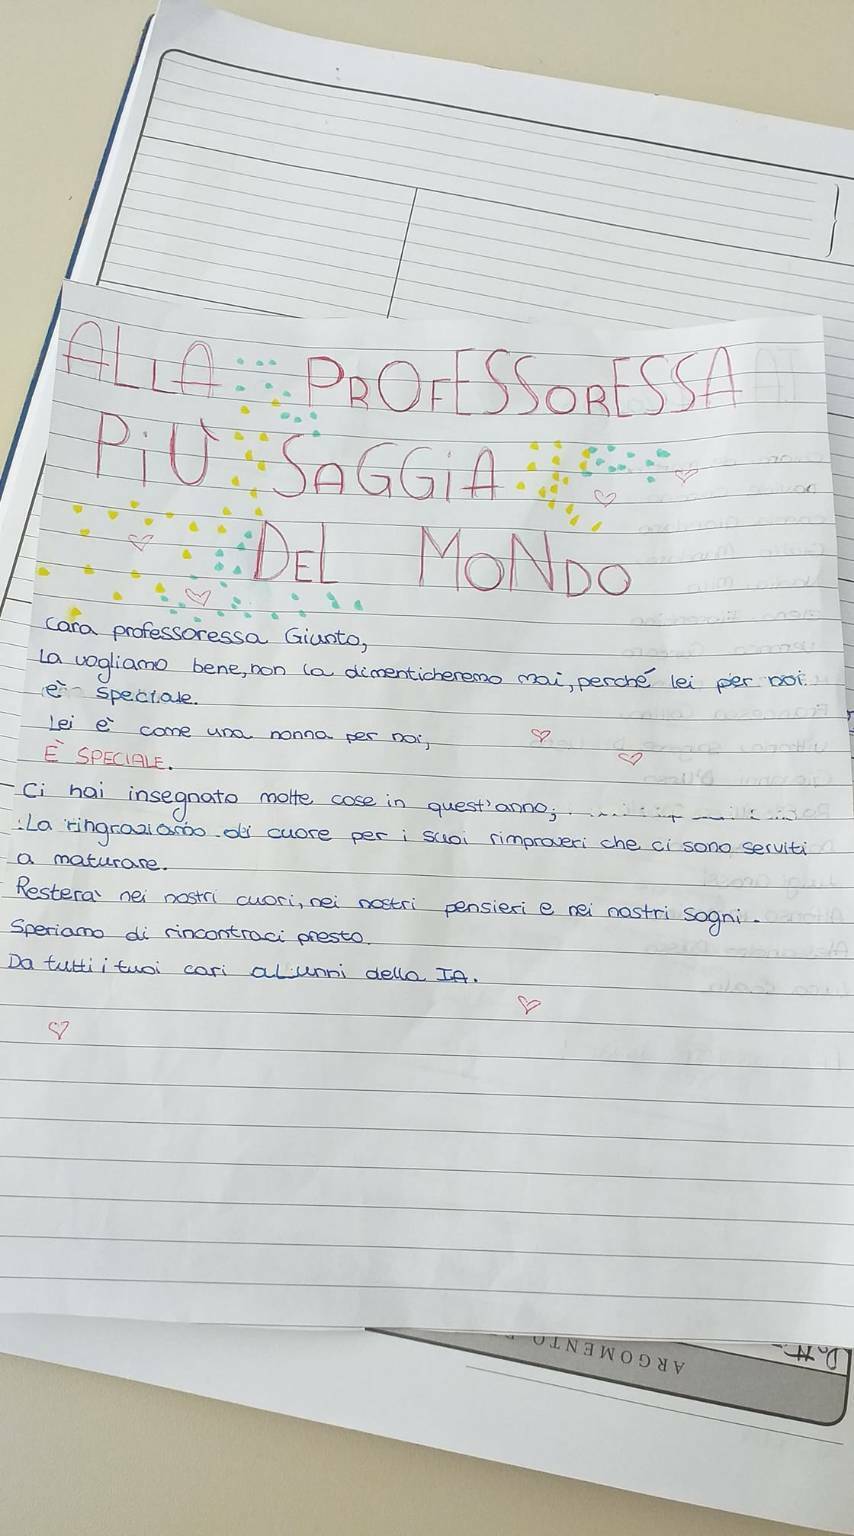 ALLA PROFESSORESSA
PiÙ SAGGiA
DEL MONDO
Cara professoressa Giunto,
La vogliamo bene, non la dimenticheremo mai, perché lei per noi
è speciale.
Lei è come una nonna per noi,
È SPECIALE.
Ci hai insegnato molte cose in quest'anno;
La ringraziamo di cuore per i suoi rimproveri che ci sono serviti
a maturare.
Resterà nei nostri cuori, nei nostri pensieri e nei nostri sogni.
Speriamo di rincontraci presto.
Da tutti i tuoi cari alunni della IA.
ARGOMENTO